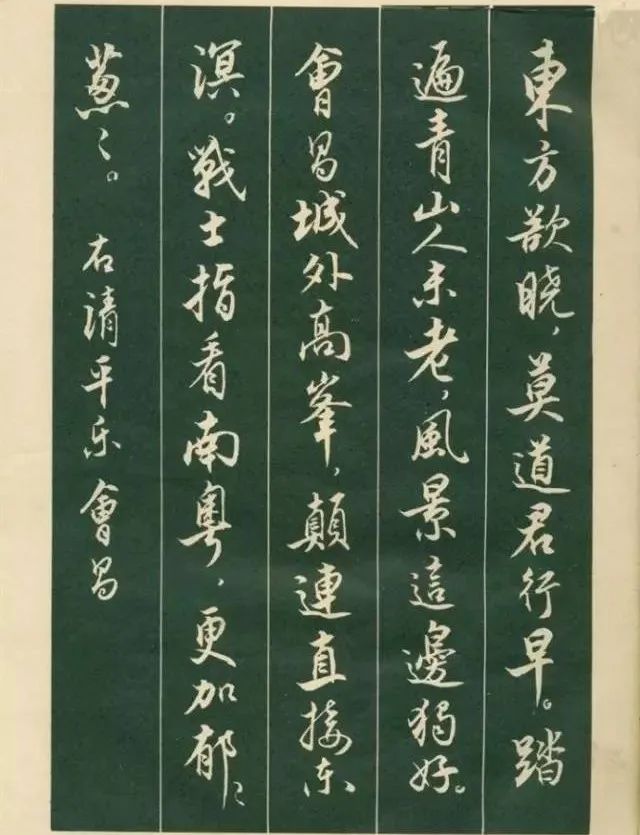 東方欲曉，莫道君行早。踏
遍青山人未老，風景這邊獨好。
會昌城外高峯，顛連直接东
溟。戰士指看南粵，更加郁〻
蔥〻。 右清平乐會昌